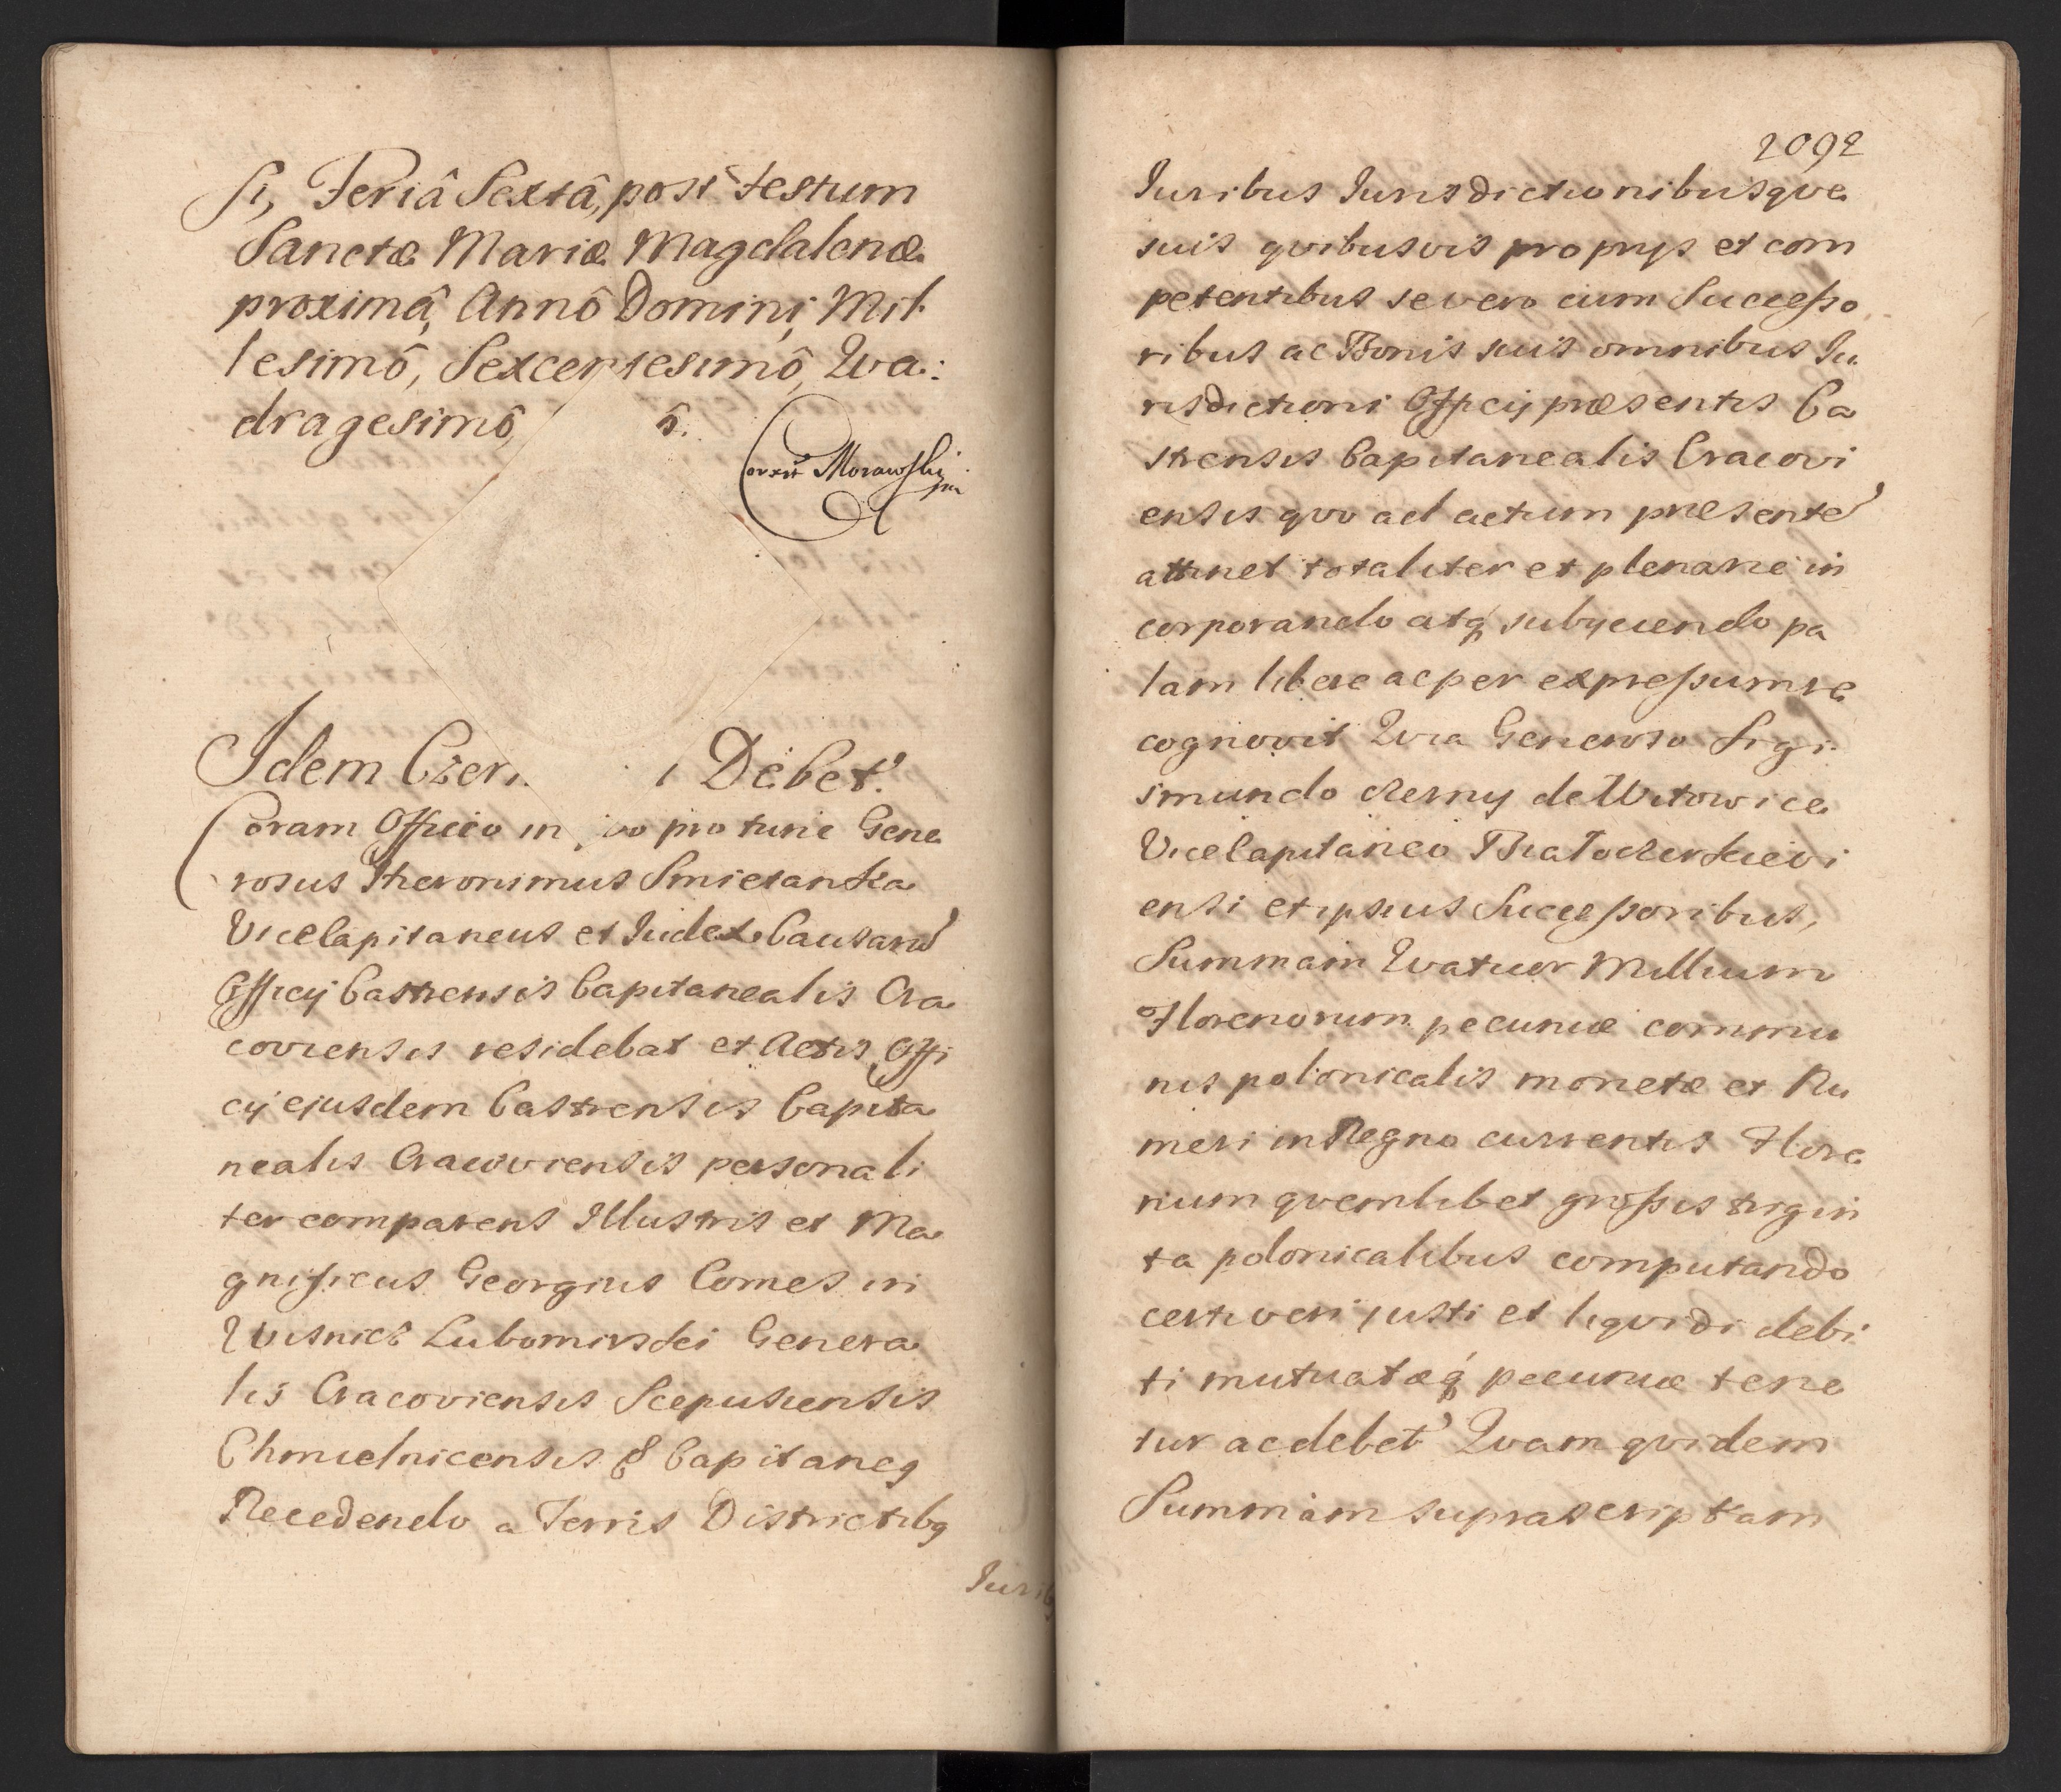 si, Feriâ Sextâ, post festum
Sanctæ Mariæ Magdalenæ
proximâ, Annô Domini, Mil
lesimô, Sexcentesimô, Qva:
dragesimô, ô.
Correx Morawski mp
Idem Czer. i Debet.
Coram Officio in pro turie Gene
rosus Hieronimus Smietanka
Vicecapitaneus et Iudex Causarū
Officij Castrensis Capitanealis Cra
coviensis residebat et Actis Offi
cij ejusdem Castrensis Capita
nealis Cracoviensis personali
ter comparens Illustris et Ma
gnificus Georgius Comes in
Wisnicz Lubomirski Genera
lis Cracoviensis Scepusiensis
Chmielnicensis & Capitaneq
Recedendo a Terris Districtibq
Iurib
2092
Iuribus Iurisdictionibusqve
suis qvibusvis proprijs et com
petentibus se vero cum Successo
ribus ac Bonis suis omnibus Iu
risdictioni Officij præsentis Ca
strensis Capitanealis Cracovi
ensis qvo ad actum præsentē
attinet totaliter et plenarie in
corporando atq subijciendo pa
lam libere ac per expressum re
cognovit Qvia Generoso Sigi
smundo czerny de Witowice
Vicecapitaneo Bialoczerkievi
ensi et ipsius Successoribus,
Summam Qvatuor Millium
Florenorum pecuniæ commu
nis polonicalis monetæ et Nu
meri in Regno currentis Flore
nium qvemlibet grossis trigin
ta polonicalibus computando
certi veri justi et liqvidi debi
ti mutuatæq pecuniæ tene
tur ac debet Qvam qvidem
Summam suprascriptam